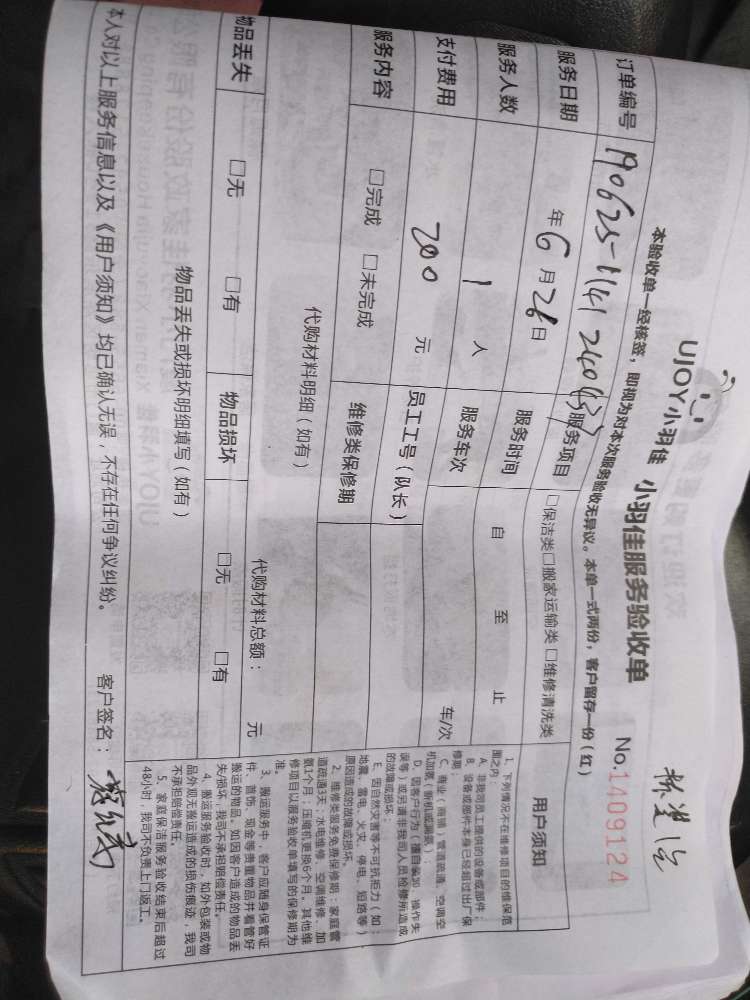 UJOY小羽佳 小羽佳服务验收单 No.1409124
本验收单一经核签，即视为对本次服务验收无异议。本单一式两份，客户留存一份（红）
订单编号 服务项目 □保洁类□搬家运输类□维修清洗类
服务日期 年6月26日 服务时间 自 至 止
服务人数 1 人 服务车次 车/次
支付费用 200 元 员工工号（队长）
服务内容 □完成 □未完成 维修类保修期
代购材料明细（如有）
代购材料总额： 元
物品丢失 □无 □有 物品损坏 □无 □有
物品丢失或损坏明细填写（如有）
用户须知
1、下列情况不在维修项目的维保范
围之内：
A、非我司员工提供的设备或部件；
B、设备或部件本身已经超过出厂保
修期；
C、商业（商铺）管道疏通、空调空
机加氟（新机或漏氟）；
D、因客户行为（擅自装卸、操作失
误等）或另请非我司人员检修所造成
的故障或损坏；
E、因自然灾害等不可抗拒力（如：
地震、雷电、火灾、停电、短路等）
原因造成的故障或损坏。
2、维修类服务免费保修期：家庭管
道疏通3天；水电维修、空调维修、加
氨1个月；压缩机更换6个月。其他维
修项目以服务验收单填写的保修期为
准。
3、搬运服务中，客户应随身保管证
件、首饰、现金等贵重物品并看管好
搬运的物品，如因客户造成的物品丢
失/损坏，我司不承担赔偿责任。
4、搬运服务验收时，如外包装或物
品外观无搬运造成的损伤痕迹，我司
不承担赔偿责任。
5、家庭保洁服务验收结束后超过
48小时，我司不负责上门返工。
本人对以上服务信息以及《用户须知》均已确认无误，不存在任何争议纠纷。 客户签名：